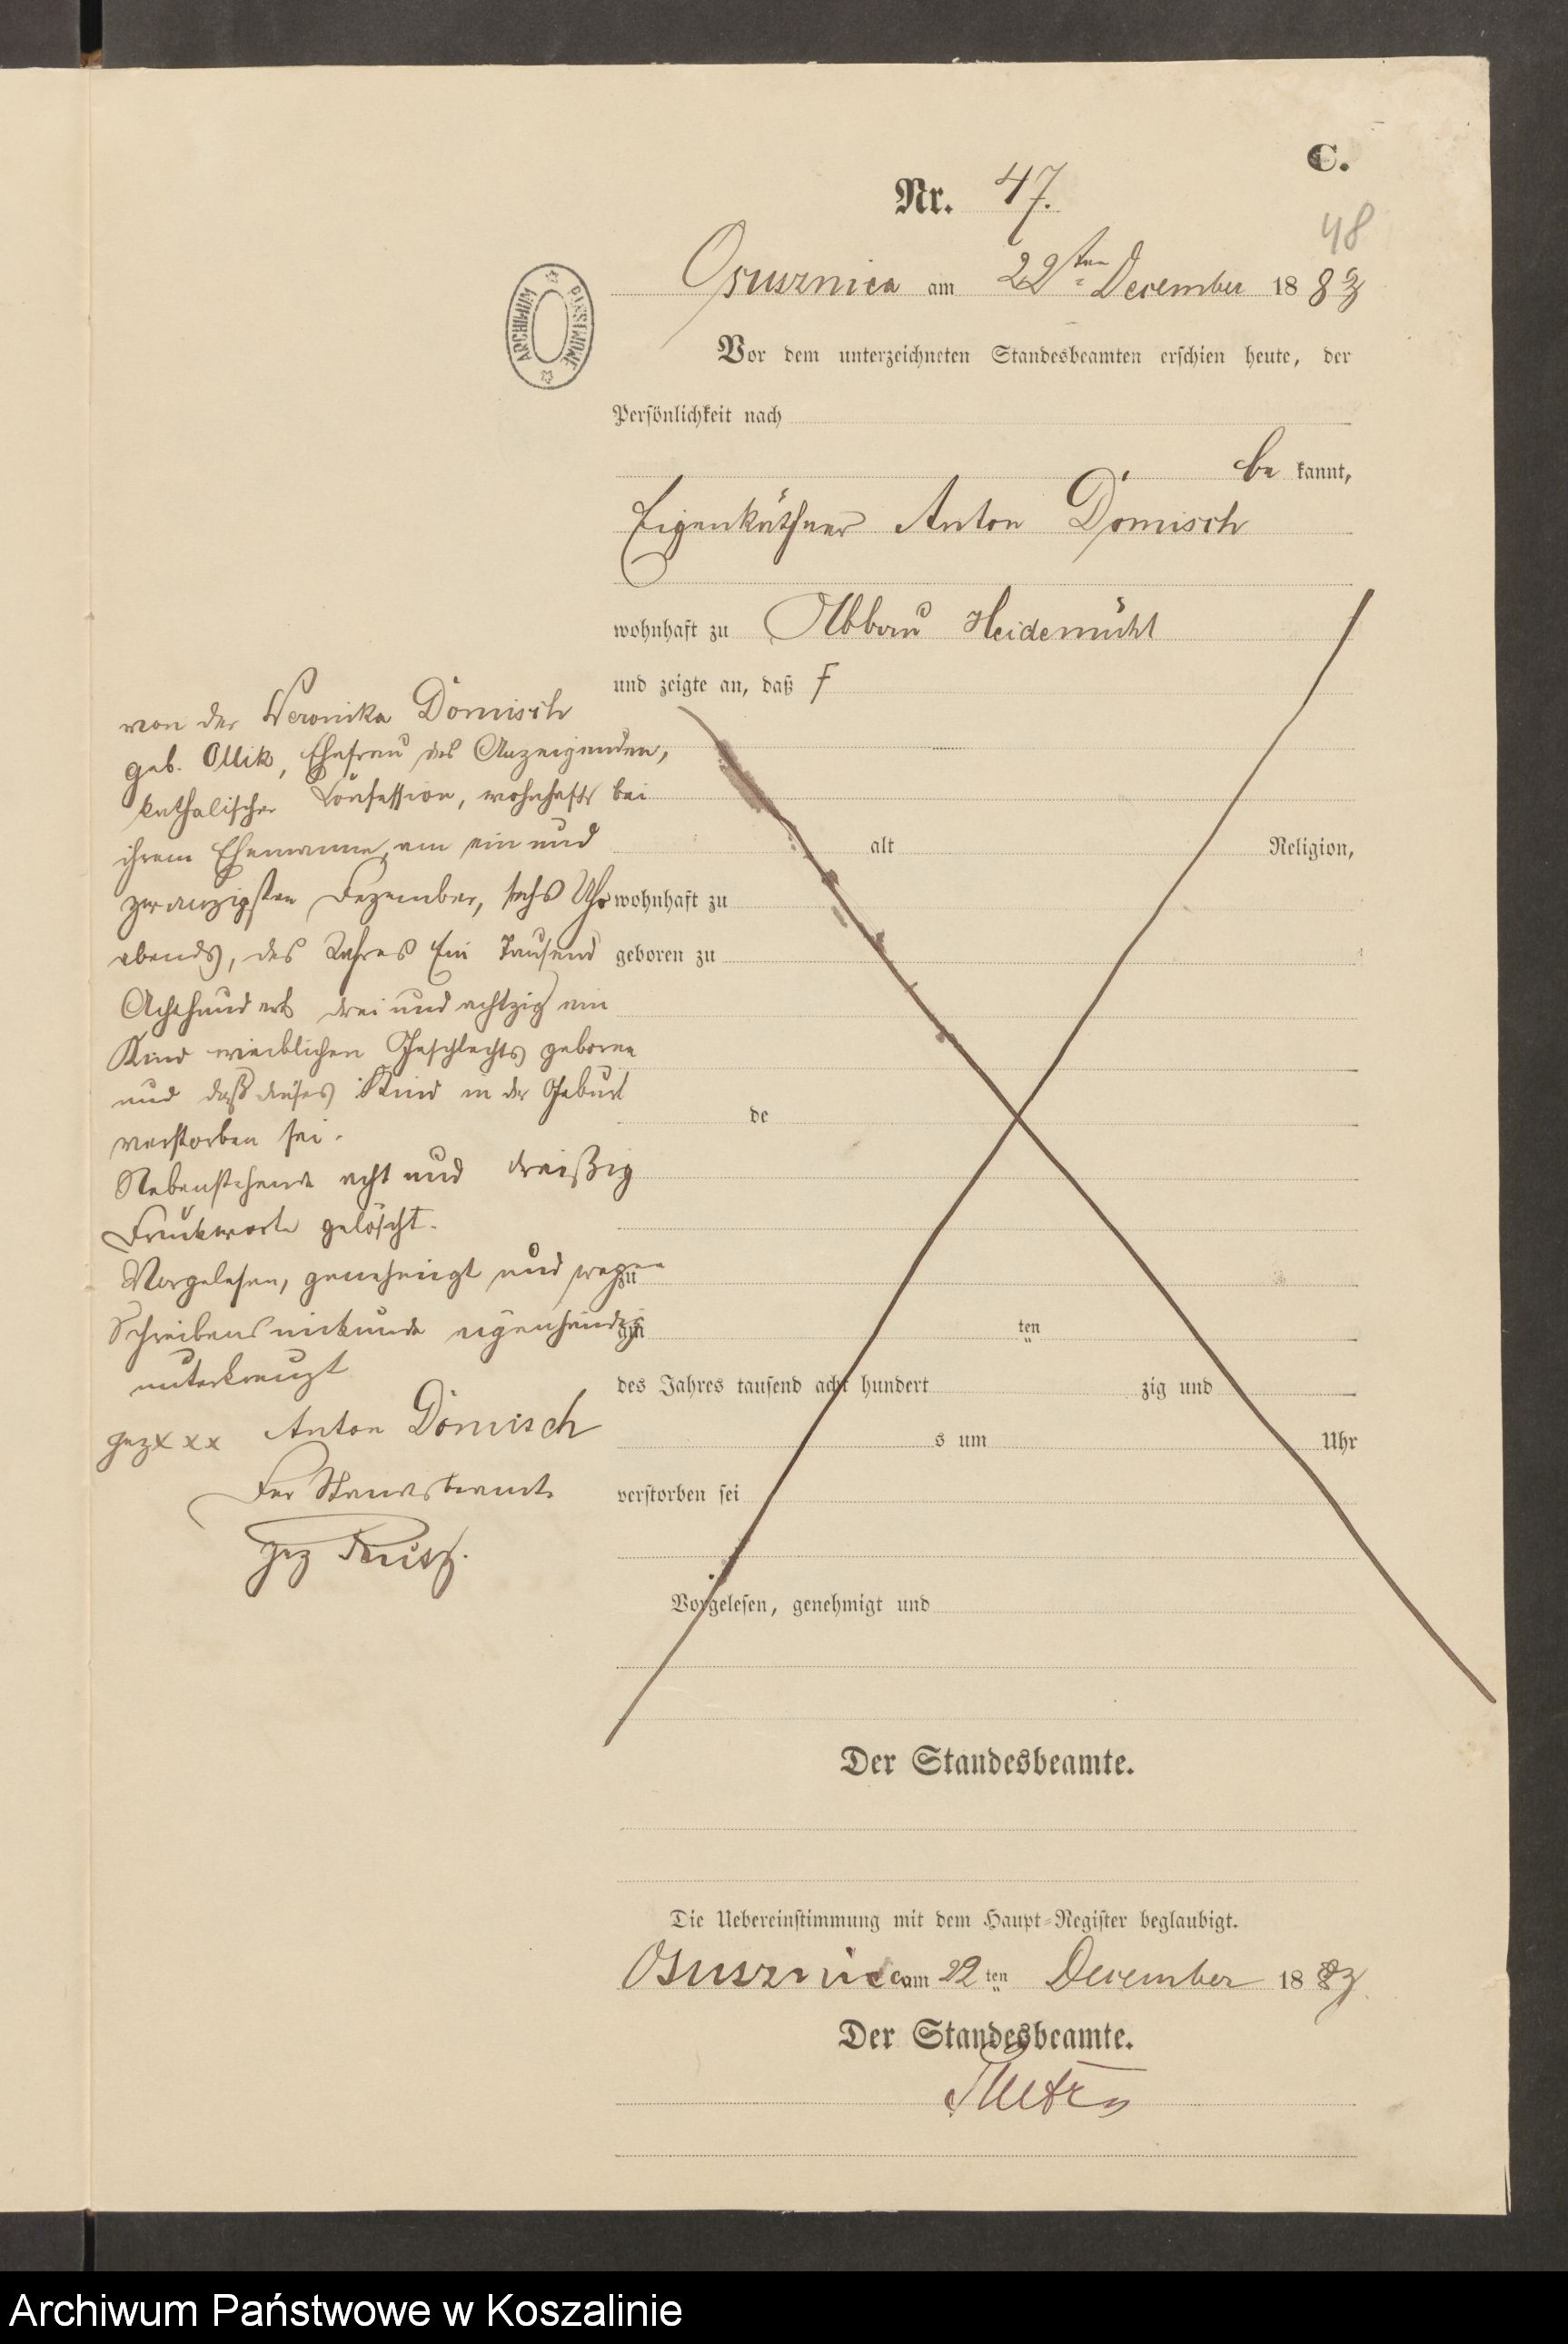 C.
Nr. 47.
48
Osusznica am 22ten December 1883
ARCHIWUM PAŃSTWOWE
Vor dem unterzeichneten Standesbeamten erschien heute, der
Persönlichkeit nach
be kannt,
Eigenkäthner Anton Domisch
wohnhaft zu Abbau Heidemühl
und zeigte an, daß
von der Veronika Domisch
geb. Ollik, Ehefrau des Anzeigenden,
katholischer Confession, wohnhaft bei
ihrem Ehemanne, am ein und
zwanzigsten Dezember, sechs Uhr
abends, des Jahres Ein Tausend
Achthundert drei und achtzig ein
Kind weiblichen Geschlechts geboren
und daß dieses Kind in der Geburt
verstorben sei.
Nebenstehende acht und dreißig
Druckworte gelöscht.
Vorgelesen, genehmigt und wegen
Schreibensunkunde eigenhändig
unterkreuzt
gez x x x Anton Domisch
Der Standesbeamte
gez
alt Religion,
wohnhaft zu
geboren zu
de
zu
am ten
des Jahres tausend acht hundert zig und
s um Uhr
verstorben sei
Vorgelesen, genehmigt und
Der Standesbeamte.
Die Uebereinstimmung mit dem Haupt-Register beglaubigt.
Osusznica am 22 ten December 1883
Der Standesbeamte.
Archiwum Państwowe w Koszalinie